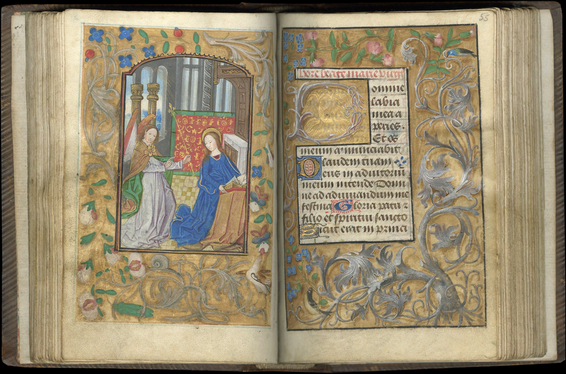 55
hore beate marie virgi
Domine
labia
mea a
peries.
Et os
meum a'nunciabit
laudem tuam
Deus in adiutoriu
meum intende Domi
ne ad adiuuandum me
festina Gloria patri
filio et spiritui sancto
Sicut erat in princi